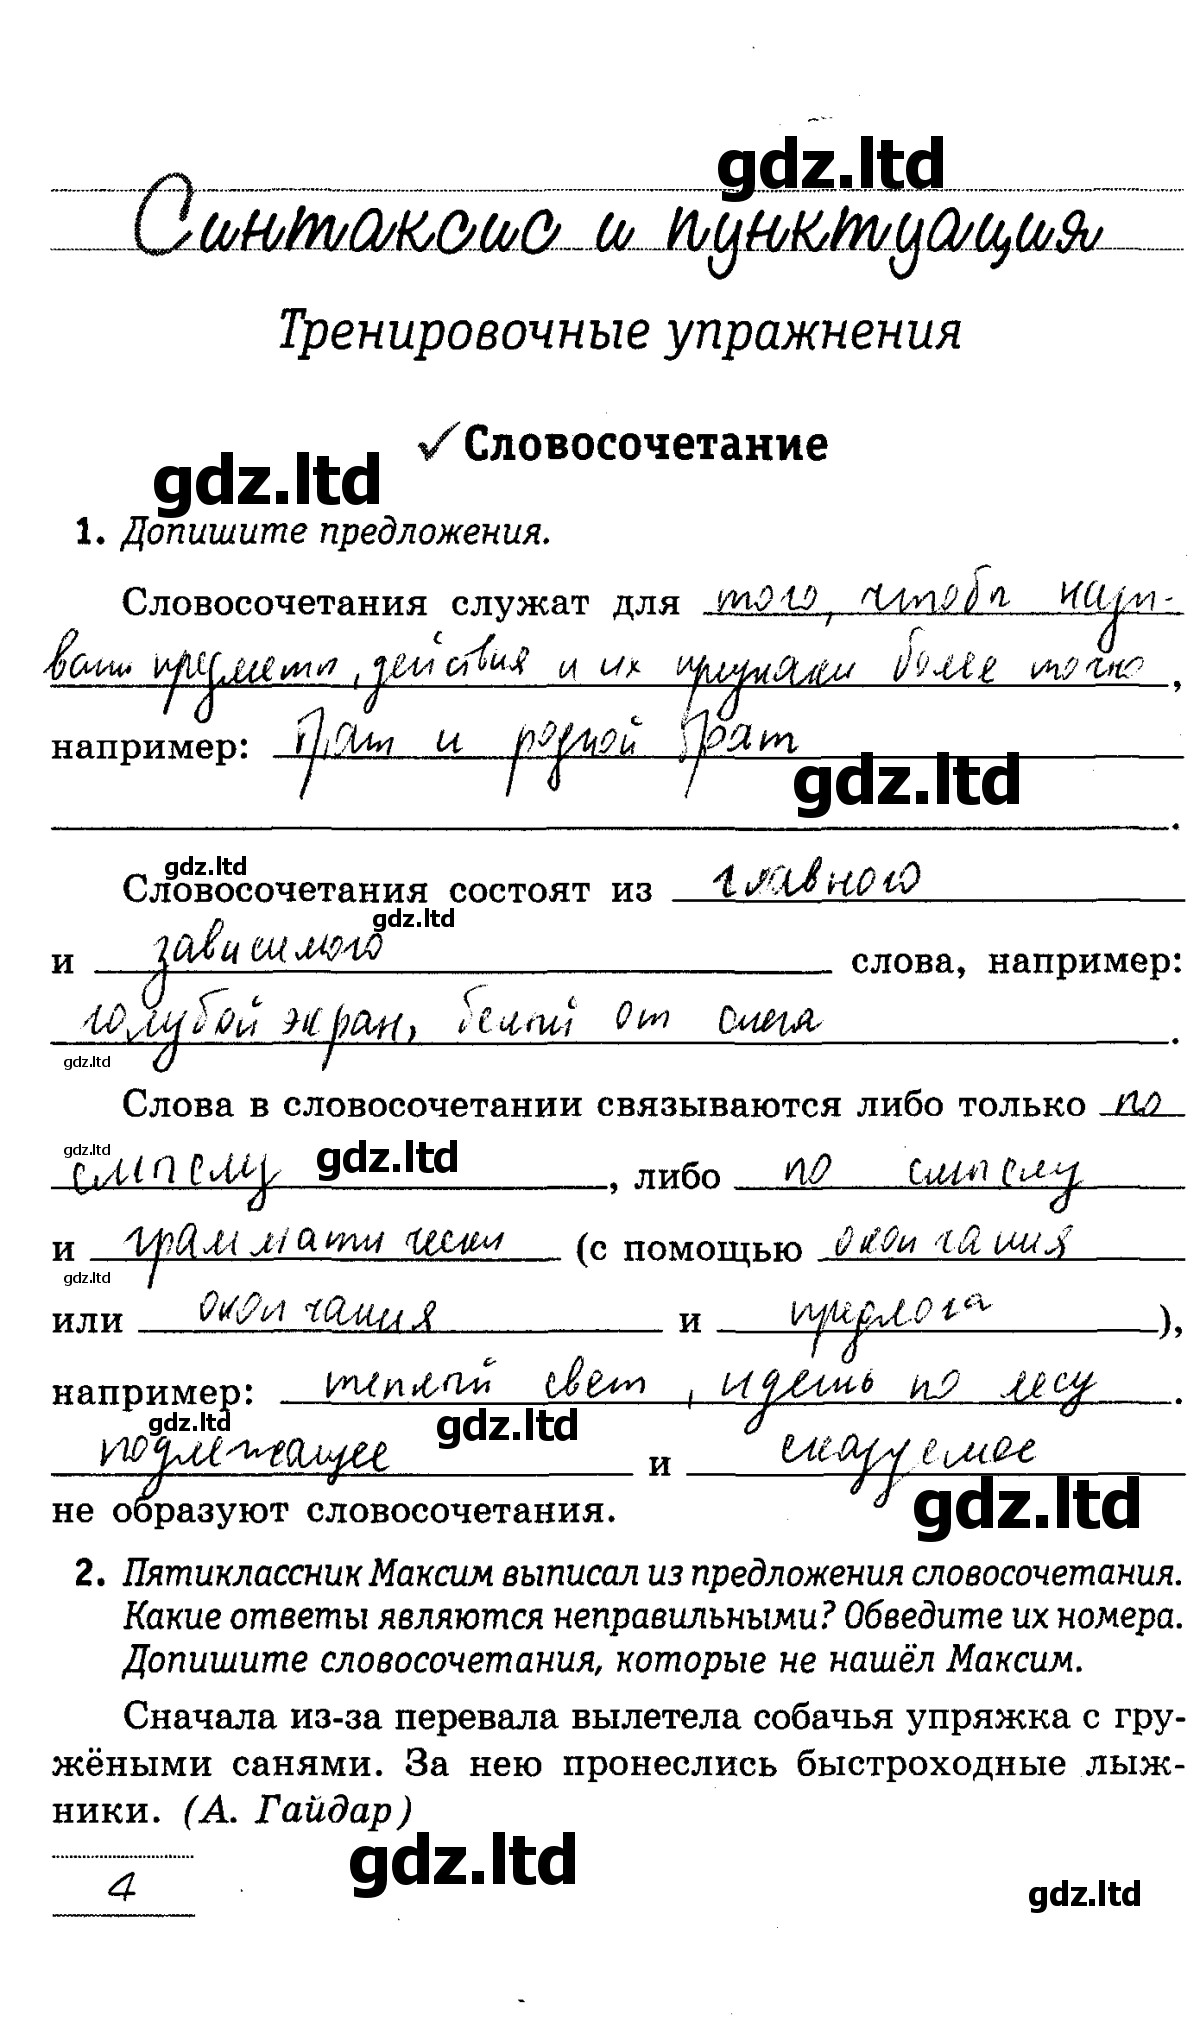 gdz.ltd
Синтаксис и пунктуация
Тренировочные упражнения
✓Словосочетание
gdz.ltd
1. Допишите предложения.
Словосочетания служат для того, чтобы назы-
вать предметы, действия и их признаки более точно,
например: Брат и родной брат
gdz.ltd
.
gdz.ltd
Словосочетания состоят из главного
gdz.ltd
и зависимого слова, например:
голубой экран, белый от снега.
gdz.ltd
Слова в словосочетании связываются либо только по
gdz.ltd
смыслу gdz.ltd, либо по смыслу
и грамматически (с помощью окончания
gdz.ltd
или окончания и предлога),
например: теплый свет, идешь по лесу.
gdz.ltd gdz.ltd
подлежащее и сказуемое
не образуют словосочетания.
gdz.ltd
2. Пятиклассник Максим выписал из предложения словосочетания.
Какие ответы являются неправильными? Обведите их номера.
Допишите словосочетания, которые не нашёл Максим.
Сначала из-за перевала вылетела собачья упряжка с гру-
жёными санями. За нею пронеслись быстроходные лыж-
ники. (А. Гайдар)
gdz.ltd
4
gdz.ltd